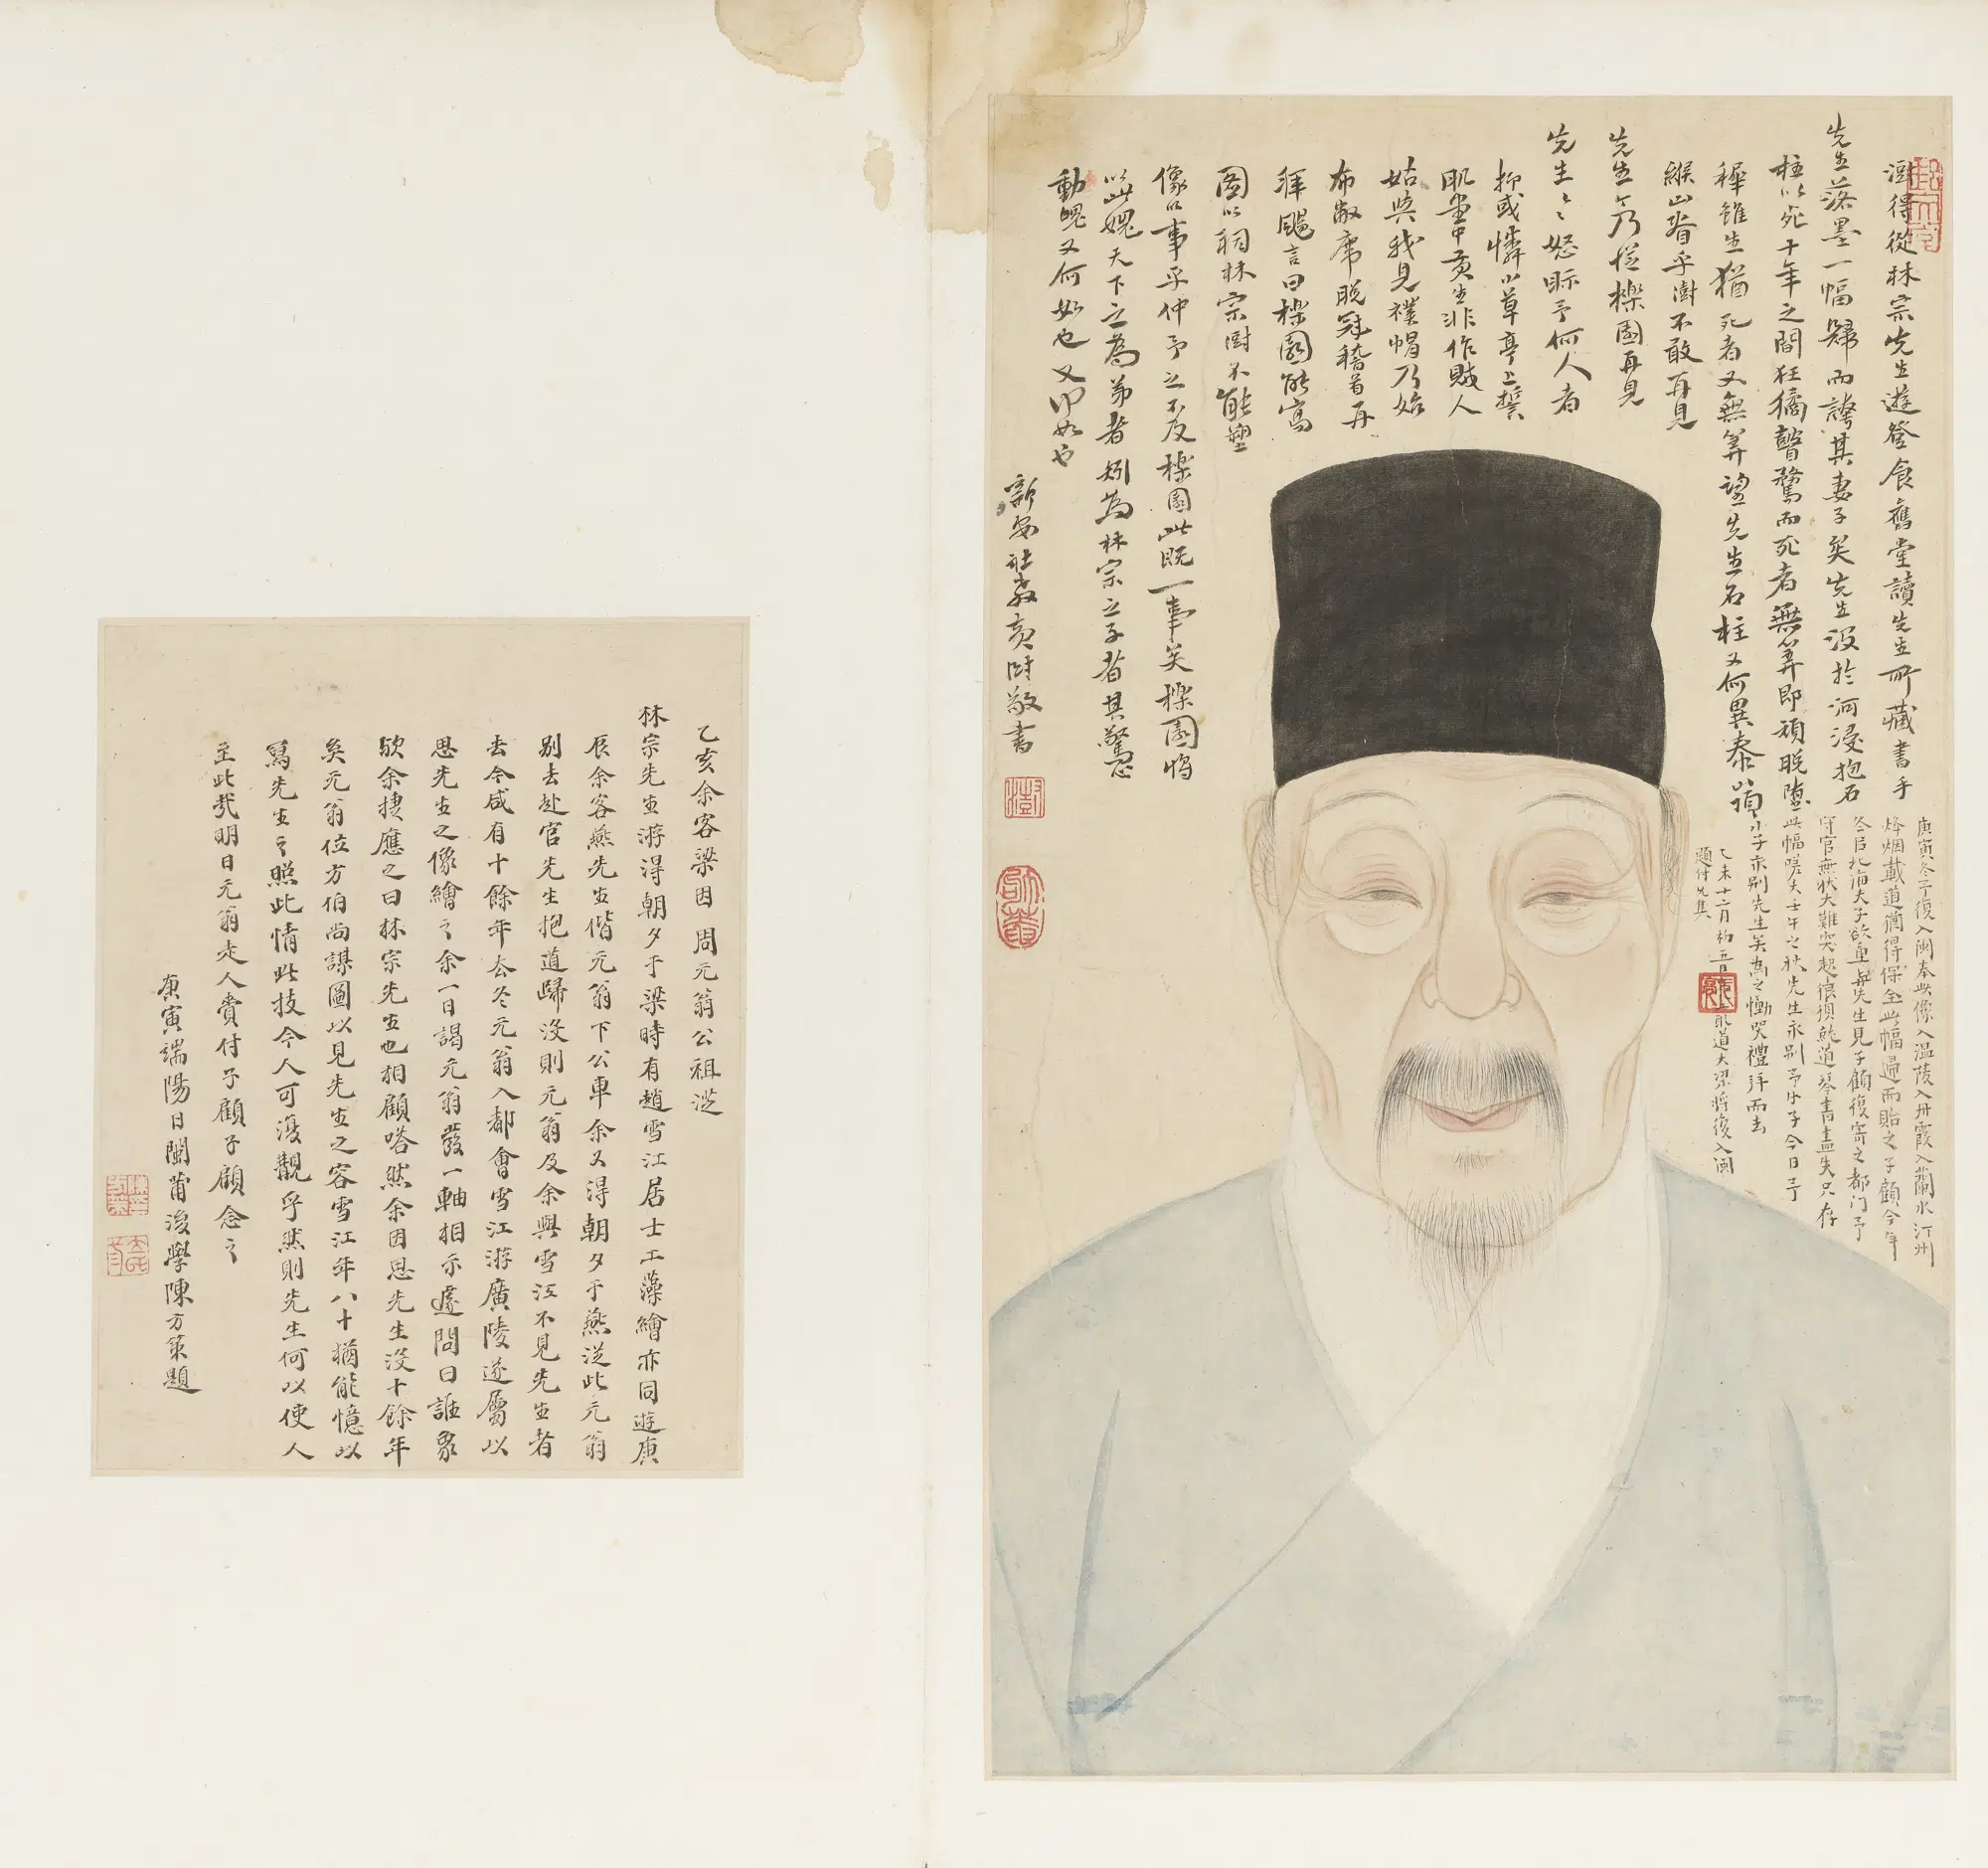 澍得從林宗先生遊登食舊堂讀先生所藏書手
先生落墨一幅歸而誇其妻子矣先生沒於河浸抱石
柱以死十年之間狂獝瞽騖而死者無筭即頑脫墮
穉雖生猶死者又無筭望先生石柱又何異泰山頂
緱山脊乎澍不敢再見
先生乃從櫟園再見
先生先生怒眎予何人者
抑或憐小草亭上誓
肌畫中黃生非作賊人
姑與我見襆帽乃始
布敝席脫冠稽首再
拜颺言曰櫟園能寫
圖以祠林宗澍不能塑
像以事乎仲予之不反櫟園此既一事矣櫟園將
以此媿天下之為弟者矧為林宗之子者其驚
動媿又何如也又何如也
新安社教黃澍敬書
庚寅冬予復入閩奉此像入溫陵入丹霞入蘭水汀州
烽烟載道猶得保全此幅遍而貽之子顧今年
冬臣北海夫子欲重與先生見子顧復寄之都門予
守官無狀大難突起復損觥道琴書盡失只存
此幅嗟夫壬午之秋先生永別予小子今日予
小子亦別先生矣為之慟哭禮拜而去
乙未十二月初五日
題付兄集
乙亥余客梁因周元翁公祖從
林宗先生游得朝夕于梁時有趙雪江居士工藻繪亦同遊庚
辰余客燕先生偕元翁下公車余又得朝夕于燕從此元翁
別去赴官先生抱道歸沒則元翁及余與雪江不見先生者
去今咸有十餘年去冬元翁入都會雪江游廣陵遂屬以
思先生之像繪之余一日謁元翁發一軸相示遽問曰誰象
歟余捷應之曰林宗先生也相顧嗒然余因思先生沒十餘年
矣元翁位方伯尚謀圖以見先生之容雪江年八十猶能憶以
寫先生之照此情此技今人可復觀乎然則先生何以使人
至此哉明日元翁走人賫付子顧子顧念之
庚寅端陽日閩莆後學陳方策題